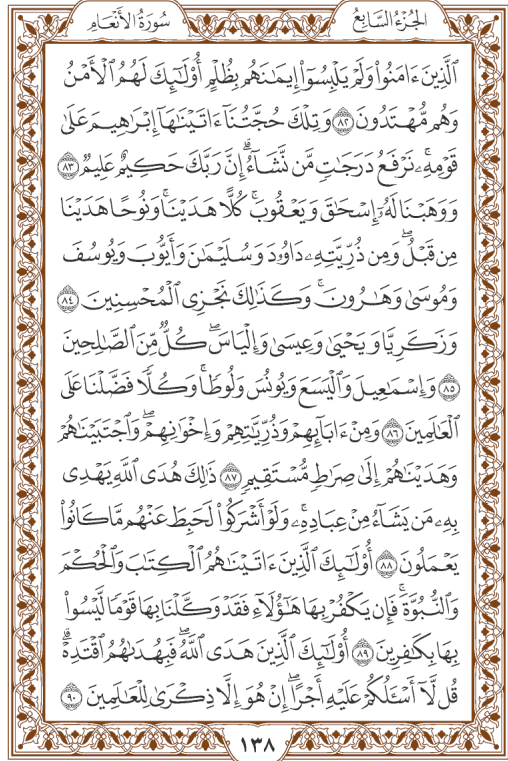 الجُزْءُ السَّابِعُ
سُورَةُ الأَنْعَامِ
ٱلَّذِينَ ءَامَنُوا۟ وَلَمْ يَلْبِسُوٓا۟ إِيمَٰنَهُم بِظُلْمٍ أُو۟لَٰٓئِكَ لَهُمُ ٱلْأَمْنُ
وَهُم مُّهْتَدُونَ ٨٢ وَتِلْكَ حُجَّتُنَآ ءَاتَيْنَٰهَآ إِبْرَٰهِيمَ عَلَىٰ
قَوْمِهِۦ ۚ نَرْفَعُ دَرَجَٰتٍ مَّن نَّشَآءُ ۗ إِنَّ رَبَّكَ حَكِيمٌ عَلِيمٌ ٨٣
وَوَهَبْنَا لَهُۥٓ إِسْحَٰقَ وَيَعْقُوبَ ۚ كُلًّا هَدَيْنَا ۚ وَنُوحًا هَدَيْنَا
مِن قَبْلُ ۖ وَمِن ذُرِّيَّتِهِۦ دَاوُۥدَ وَسُلَيْمَٰنَ وَأَيُّوبَ وَيُوسُفَ
وَمُوسَىٰ وَهَٰرُونَ ۚ وَكَذَٰلِكَ نَجْزِى ٱلْمُحْسِنِينَ ٨٤
وَزَكَرِيَّا وَيَحْيَىٰ وَعِيسَىٰ وَإِلْيَاسَ ۖ كُلٌّ مِّنَ ٱلصَّٰلِحِينَ
٨٥ وَإِسْمَٰعِيلَ وَٱلْيَسَعَ وَيُونُسَ وَلُوطًا ۚ وَكُلًّا فَضَّلْنَا عَلَى
ٱلْعَٰلَمِينَ ٨٦ وَمِنْ ءَابَآئِهِمْ وَذُرِّيَّٰتِهِمْ وَإِخْوَٰنِهِمْ ۖ وَٱجْتَبَيْنَٰهُمْ
وَهَدَيْنَٰهُمْ إِلَىٰ صِرَٰطٍ مُّسْتَقِيمٍ ٨٧ ذَٰلِكَ هُدَى ٱللَّهِ يَهْدِى
بِهِۦ مَن يَشَآءُ مِنْ عِبَادِهِۦ ۚ وَلَوْ أَشْرَكُوا۟ لَحَبِطَ عَنْهُم مَّا كَانُوا۟
يَعْمَلُونَ ٨٨ أُو۟لَٰٓئِكَ ٱلَّذِينَ ءَاتَيْنَٰهُمُ ٱلْكِتَٰبَ وَٱلْحُكْمَ
وَٱلنُّبُوَّةَ ۚ فَإِن يَكْفُرْ بِهَا هَٰٓؤُلَآءِ فَقَدْ وَكَّلْنَا بِهَا قَوْمًا لَّيْسُوا۟
بِهَا بِكَٰفِرِينَ ٨٩ أُو۟لَٰٓئِكَ ٱلَّذِينَ هَدَى ٱللَّهُ ۖ فَبِهُدَىٰهُمُ ٱقْتَدِهْ ۗ
قُل لَّآ أَسْـَٔلُكُمْ عَلَيْهِ أَجْرًا ۖ إِنْ هُوَ إِلَّا ذِكْرَىٰ لِلْعَٰلَمِينَ ٩٠
١٣٨